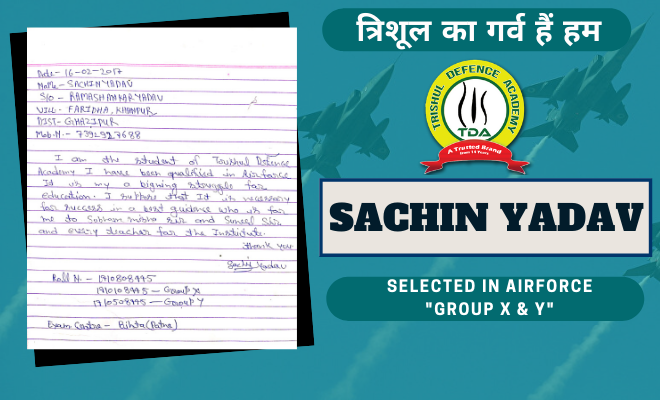 Date - 16-02-2017
Name - SACHIN YADAV
S/O - RAMASHANKAR YADAV
VILL - FARIDHA, KHANPUR
DIST - GHAZIPUR
Mob.N. -
I am the student of Trishul Defence
Academy I have been qualified in Airforce
It is my a bigning struggle for
education. I suppose that It is necessary
for success in a best guidance who is for
me to Sobham sir and Sunil Sir
and every teacher for the Institute.
Thank you
Sachin Yadav
Roll N. - 1910808495
1910108495 - Group X
1910508495 - Group Y
Exam Centre - Bihta (Patna)
त्रिशूल का गर्व हैं हम
TRISHUL DEFENCE ACADEMY
TDA
A Trusted Brand
SACHIN YADAV
SELECTED IN AIRFORCE
"GROUP X & Y"